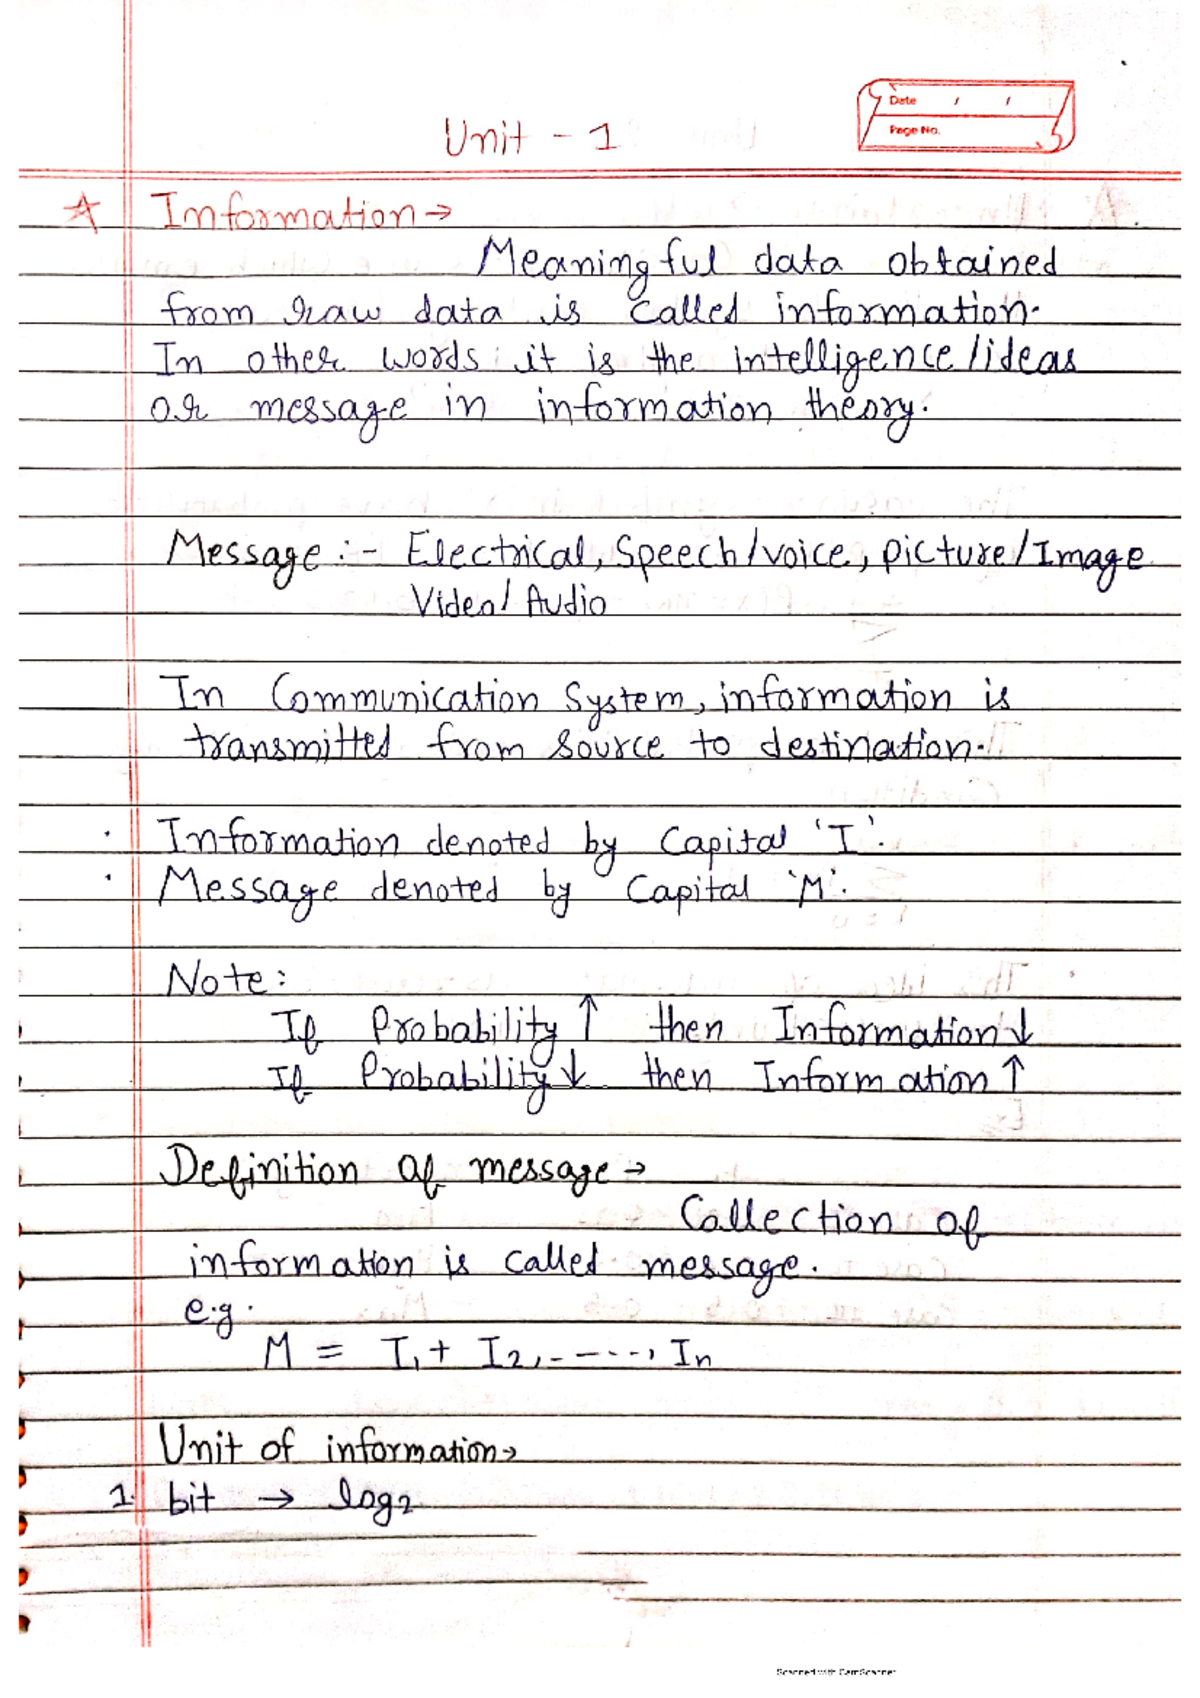 Date / /
Page No.
Unit - 1
☆ Information →
Meaningful data obtained
from raw data is called information.
In other words it is the intelligence/ideas
or message in information theory.
Message :- Electrical, Speech/voice, picture/Image
Video/ Audio
In Communication System, information is
transmitted from source to destination.
· Information denoted by Capital 'I'.
· Message denoted by Capital 'M'.
Note:
If Probability ↑ then Information ↓
If Probability ↓ then Information ↑
Definition of message →
Collection of
information is called message.
e.g.
M = I1 + I2, - - - - -, In
Unit of information →
1. bit → log2
Scanned with CamScanner